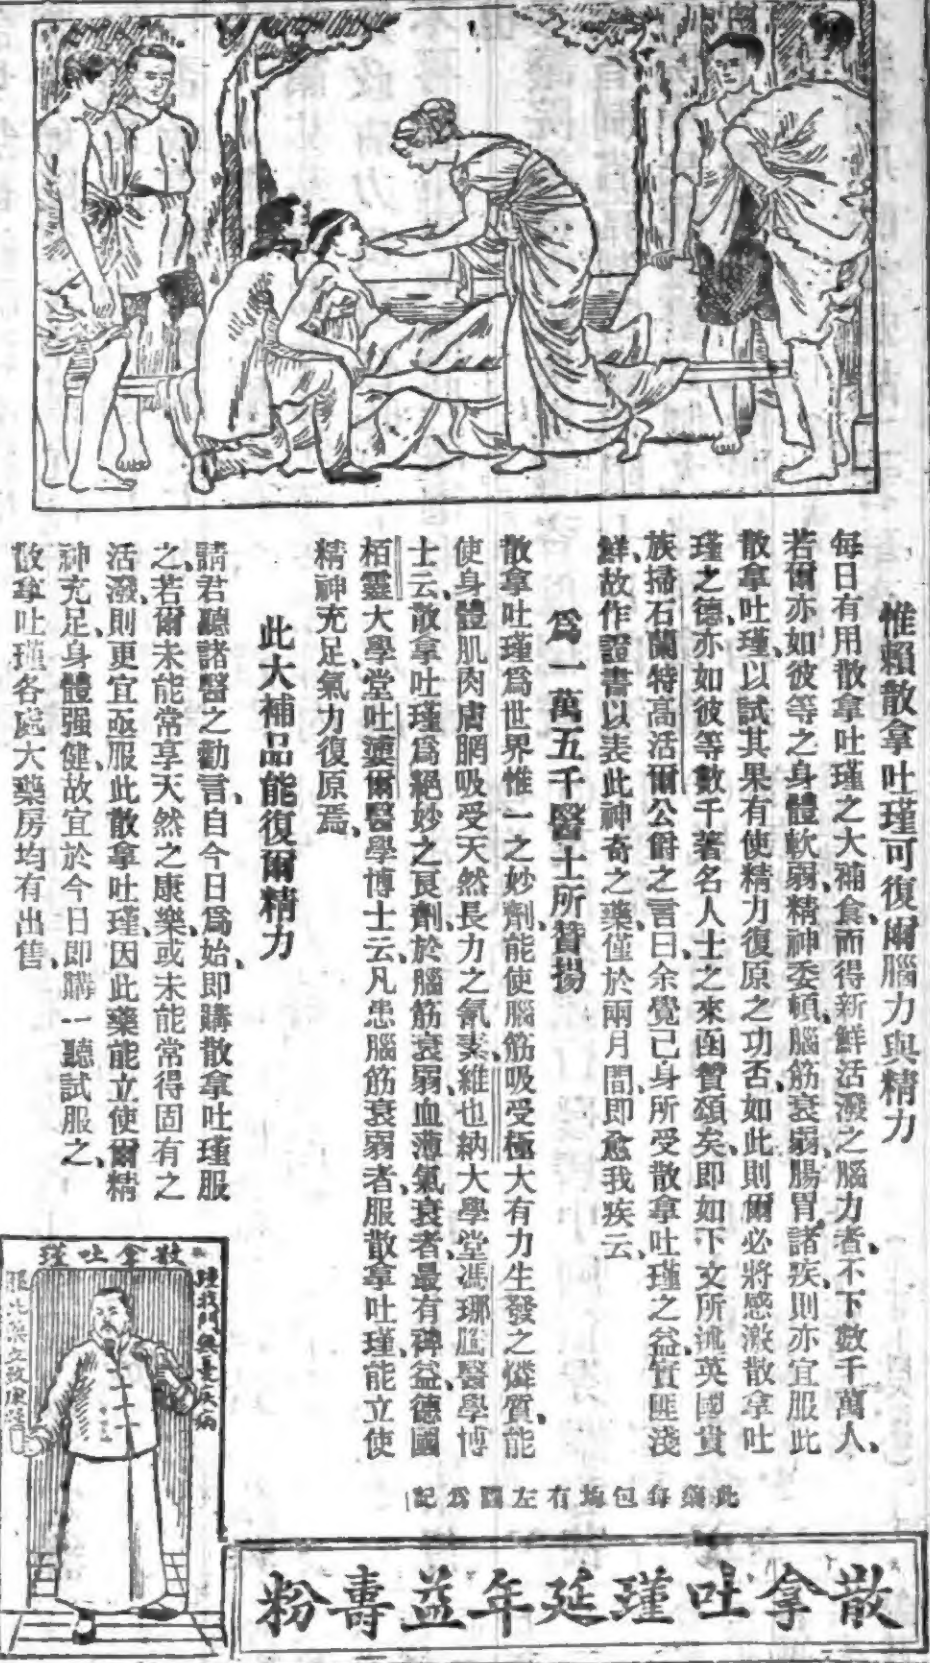 惟賴散拿吐瑾可復爾腦力與精力
每日有用散拿吐瑾之大補食而得新鮮活潑之腦力者、不下數千萬人、
若爾亦如彼等之身體軟弱、精神委頓、腦筋衰弱、腸胃諸疾、則亦宜服此
散拿吐瑾、以試其果有使精力復原之功否、如此則爾必將感激散拿吐
瑾之德、亦如彼等數千著名人士之來函贊頌矣、即如下文所述英國貴
族掃石蘭特高活爾公爵之言曰、余覺己身所受散拿吐瑾之益、實匪淺
鮮、故作證書以表此神奇之藥、僅於兩月間、即愈我疾云、
爲一萬五千醫士所贊揚
散拿吐瑾爲世界惟一之妙劑、能使腦筋吸受極大有力生發之燐質、能
使身體肌肉膚網吸受天然長力之氰素、維也納大學堂馮娜醫學博
士云、散拿吐瑾爲絕妙之良劑、於腦筋衰弱、血薄氣衰者、最有裨益、德國
栢靈大學堂吐爾醫學博士云、凡患腦筋衰弱者、服散拿吐瑾、能立使
精神充足、氣力復原焉、
此大補品能復爾精力
請君聽諸醫之勸言、自今日爲始、即購散拿吐瑾服
之、若爾未能常享天然之康樂、或未能常得固有之
活潑、則更宜亟服此散拿吐瑾、因此藥能立使爾精
神充足、身體强健、故宜於今日即購一聽試服之、
散拿吐瑾各處大藥房均有出售、
此藥每包均有左圖爲記
散拿吐瑾
散拿吐瑾延年益壽粉